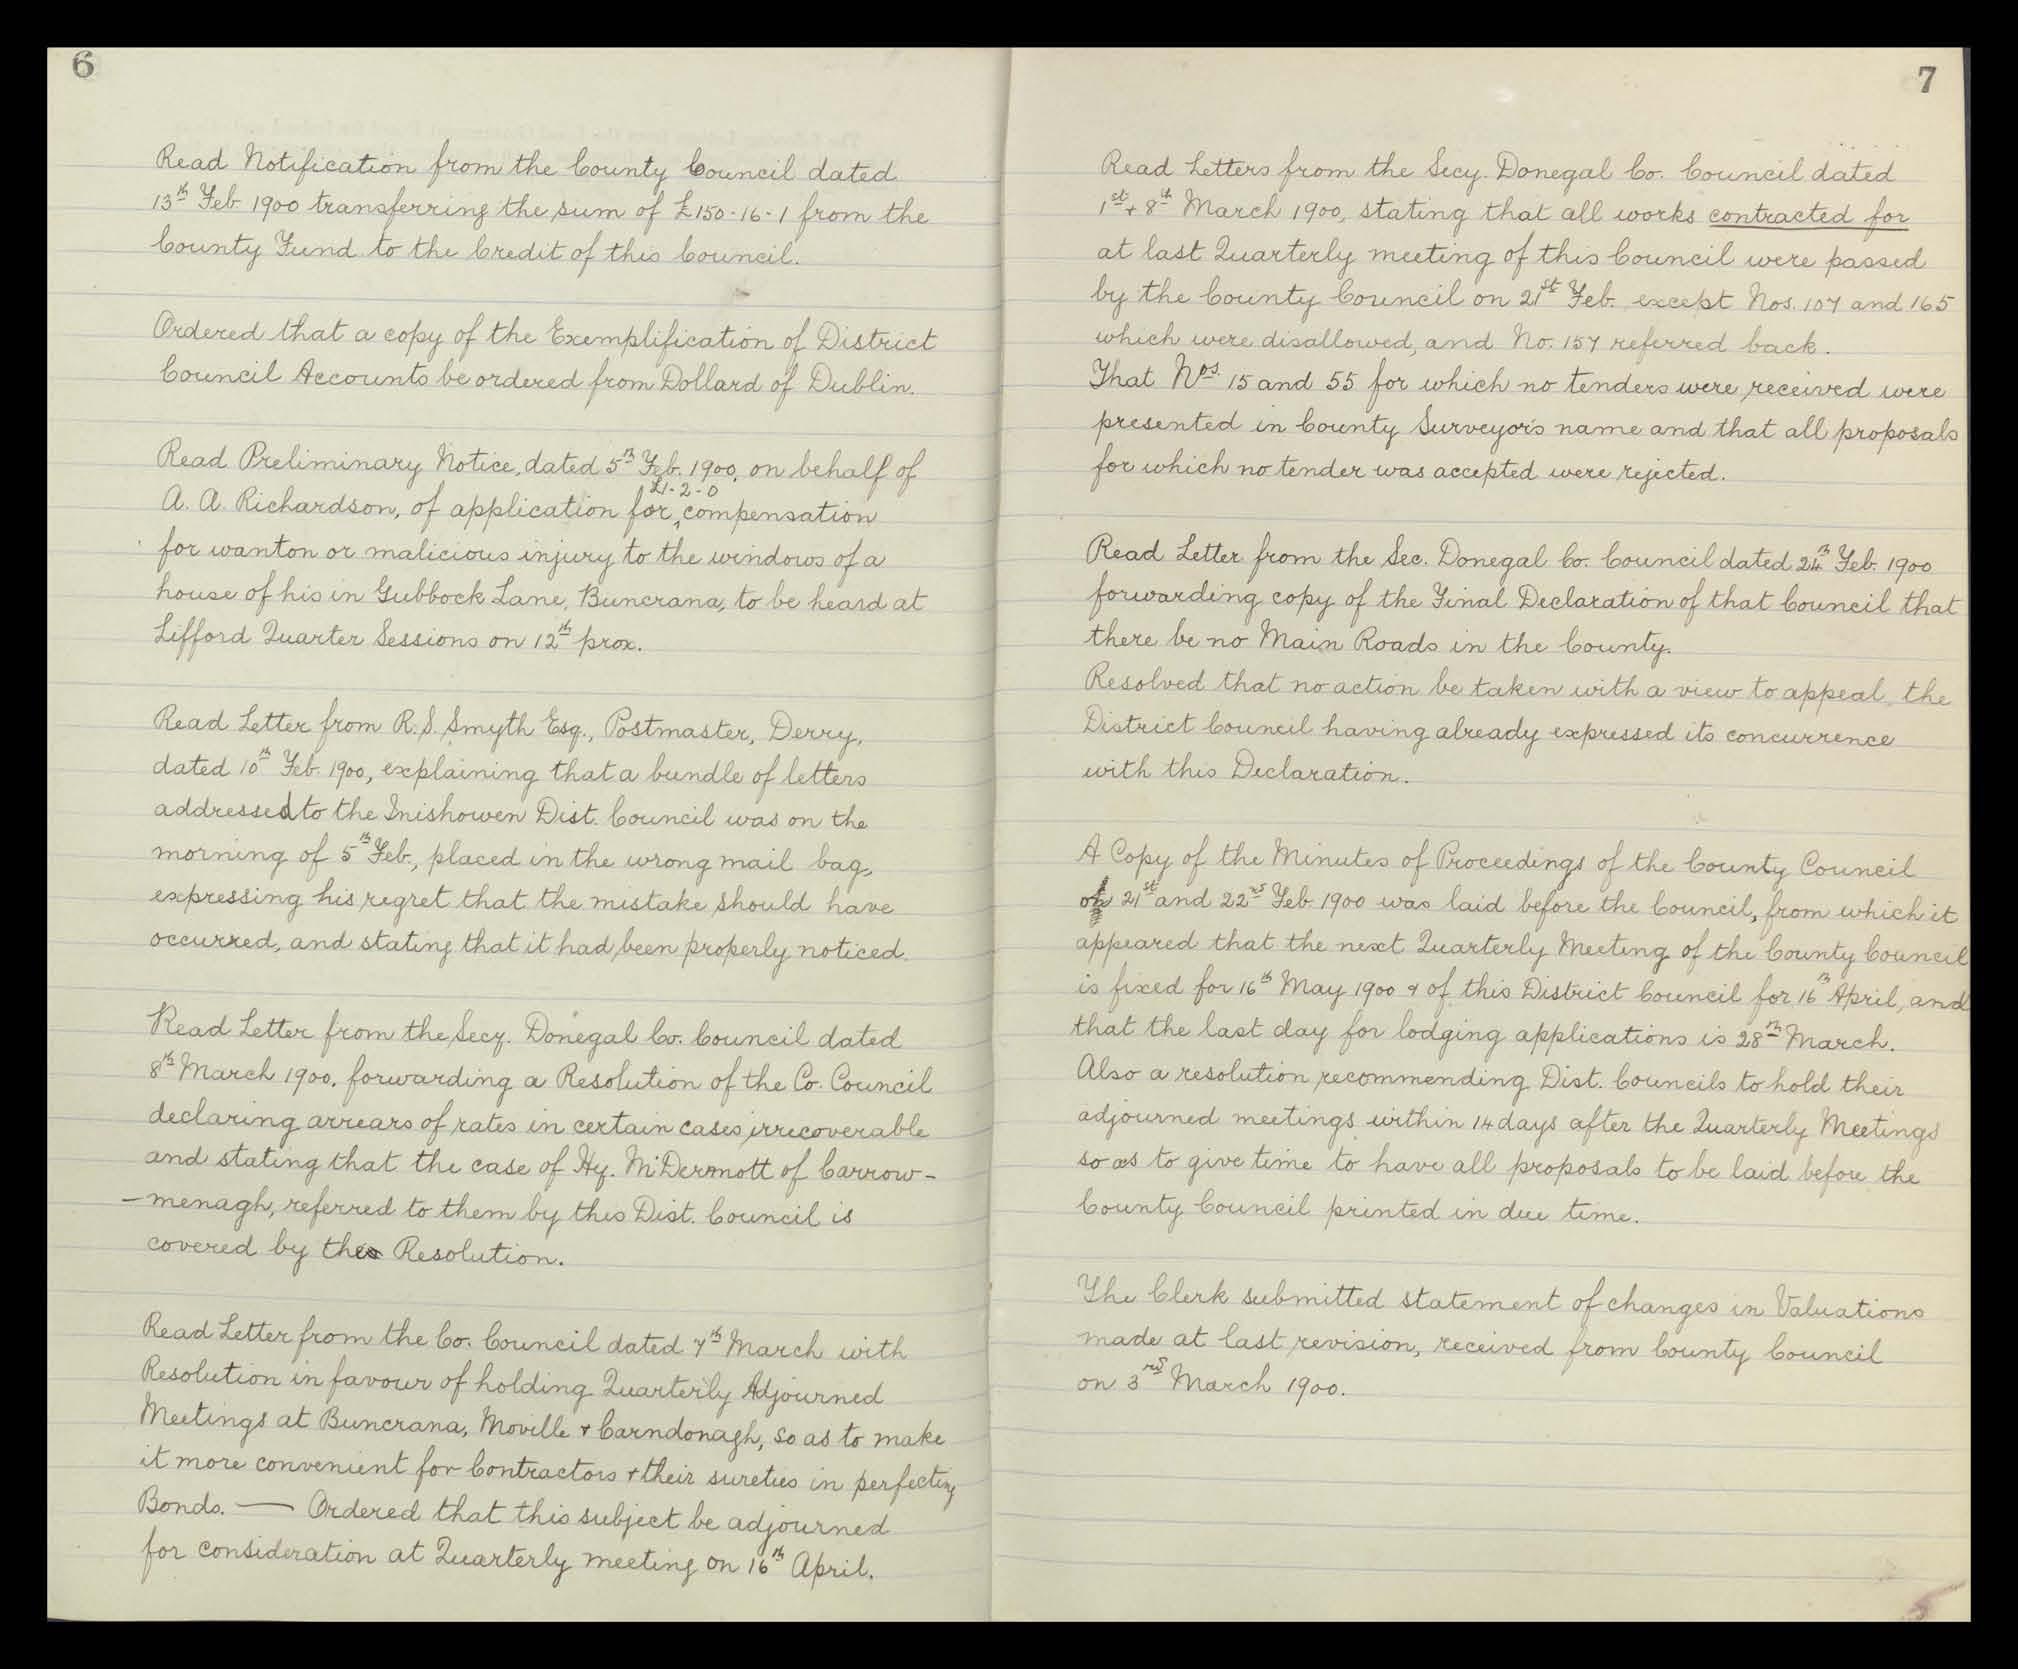 6
Read Notification from the County Council dated
13th Feb 1900 transferring the sum of £150-16-1 from the
County Fund to the Credit of this Council.
Ordered that a copy of the Exemplification of District
Council Accounts be ordered from Dollard of Dublin.
Read Preliminary Notice, dated 5th Feb. 1900, on behalf of
£1-2-0
A. A. Richardson, of application for ^ compensation
for wanton or malicious injury to the windows of a
house of his in Gubbock Lane, Buncrana, to be heard at
Lifford Quarter Sessions on 12th prox.
Read Letter from R. S. Smyth Esq., Postmaster, Derry,
dated 10th Feb. 1900, explaining that a bundle of letters
addressed to the Inishowen Dist. Council was on the
morning of 5th Feb., placed in the wrong mail bag,
expressing his regret that the mistake should have
occurred, and stating that it had been properly noticed.
Read Letter from the Secy. Donegal Co. Council dated
8th March 1900, forwarding a Resolution of the Co. Council
declaring arrears of rates in certain cases irrecoverable
and stating that the case of Hy. McDermott of Carrow-
-menagh, referred to them by this Dist. Council is
covered by the Resolution.
Read Letter from the Co. Council dated 7th March with
Resolution in favour of holding Quarterly Adjourned
Meetings at Buncrana, Moville & Carndonagh, so as to make
it more convenient for Contractors & their sureties in perfecting
Bonds. — Ordered that this subject be adjourned
for consideration at Quarterly meeting on 16th April.
7
Read Letters from the Secy. Donegal Co. Council dated
1st & 8th March 1900, stating that all works contracted for
at last Quarterly meeting of this Council were passed
by the County Council on 21st Feb. except Nos. 107 and 165
which were disallowed, and No. 157 referred back.
That Nos. 15 and 55 for which no tenders were received were
presented in County Surveyor's name and that all proposals
for which no tender was accepted were rejected.
Read Letter from the Sec. Donegal Co. Council dated 24th Feb. 1900
forwarding copy of the Final Declaration of that Council that
there be no Main Roads in the County.
Resolved that no action be taken with a view to appeal, the
District Council having already expressed its concurrence
with this Declaration.
A Copy of the Minutes of Proceedings of the County Council
21st and 22nd Feb. 1900 was laid before the Council, from which it
appeared that the next Quarterly Meeting of the County Council
is fixed for 16th May 1900 & of this District Council for 16th April, and
that the last day for lodging applications is 28th March.
Also a resolution recommending Dist. Councils to hold their
adjourned meetings within 14 days after the Quarterly Meetings
so as to give time to have all proposals to be laid before the
County Council printed in due time.
The Clerk submitted statement of changes in Valuations
made at last revision, received from County Council
on 3rd March 1900.